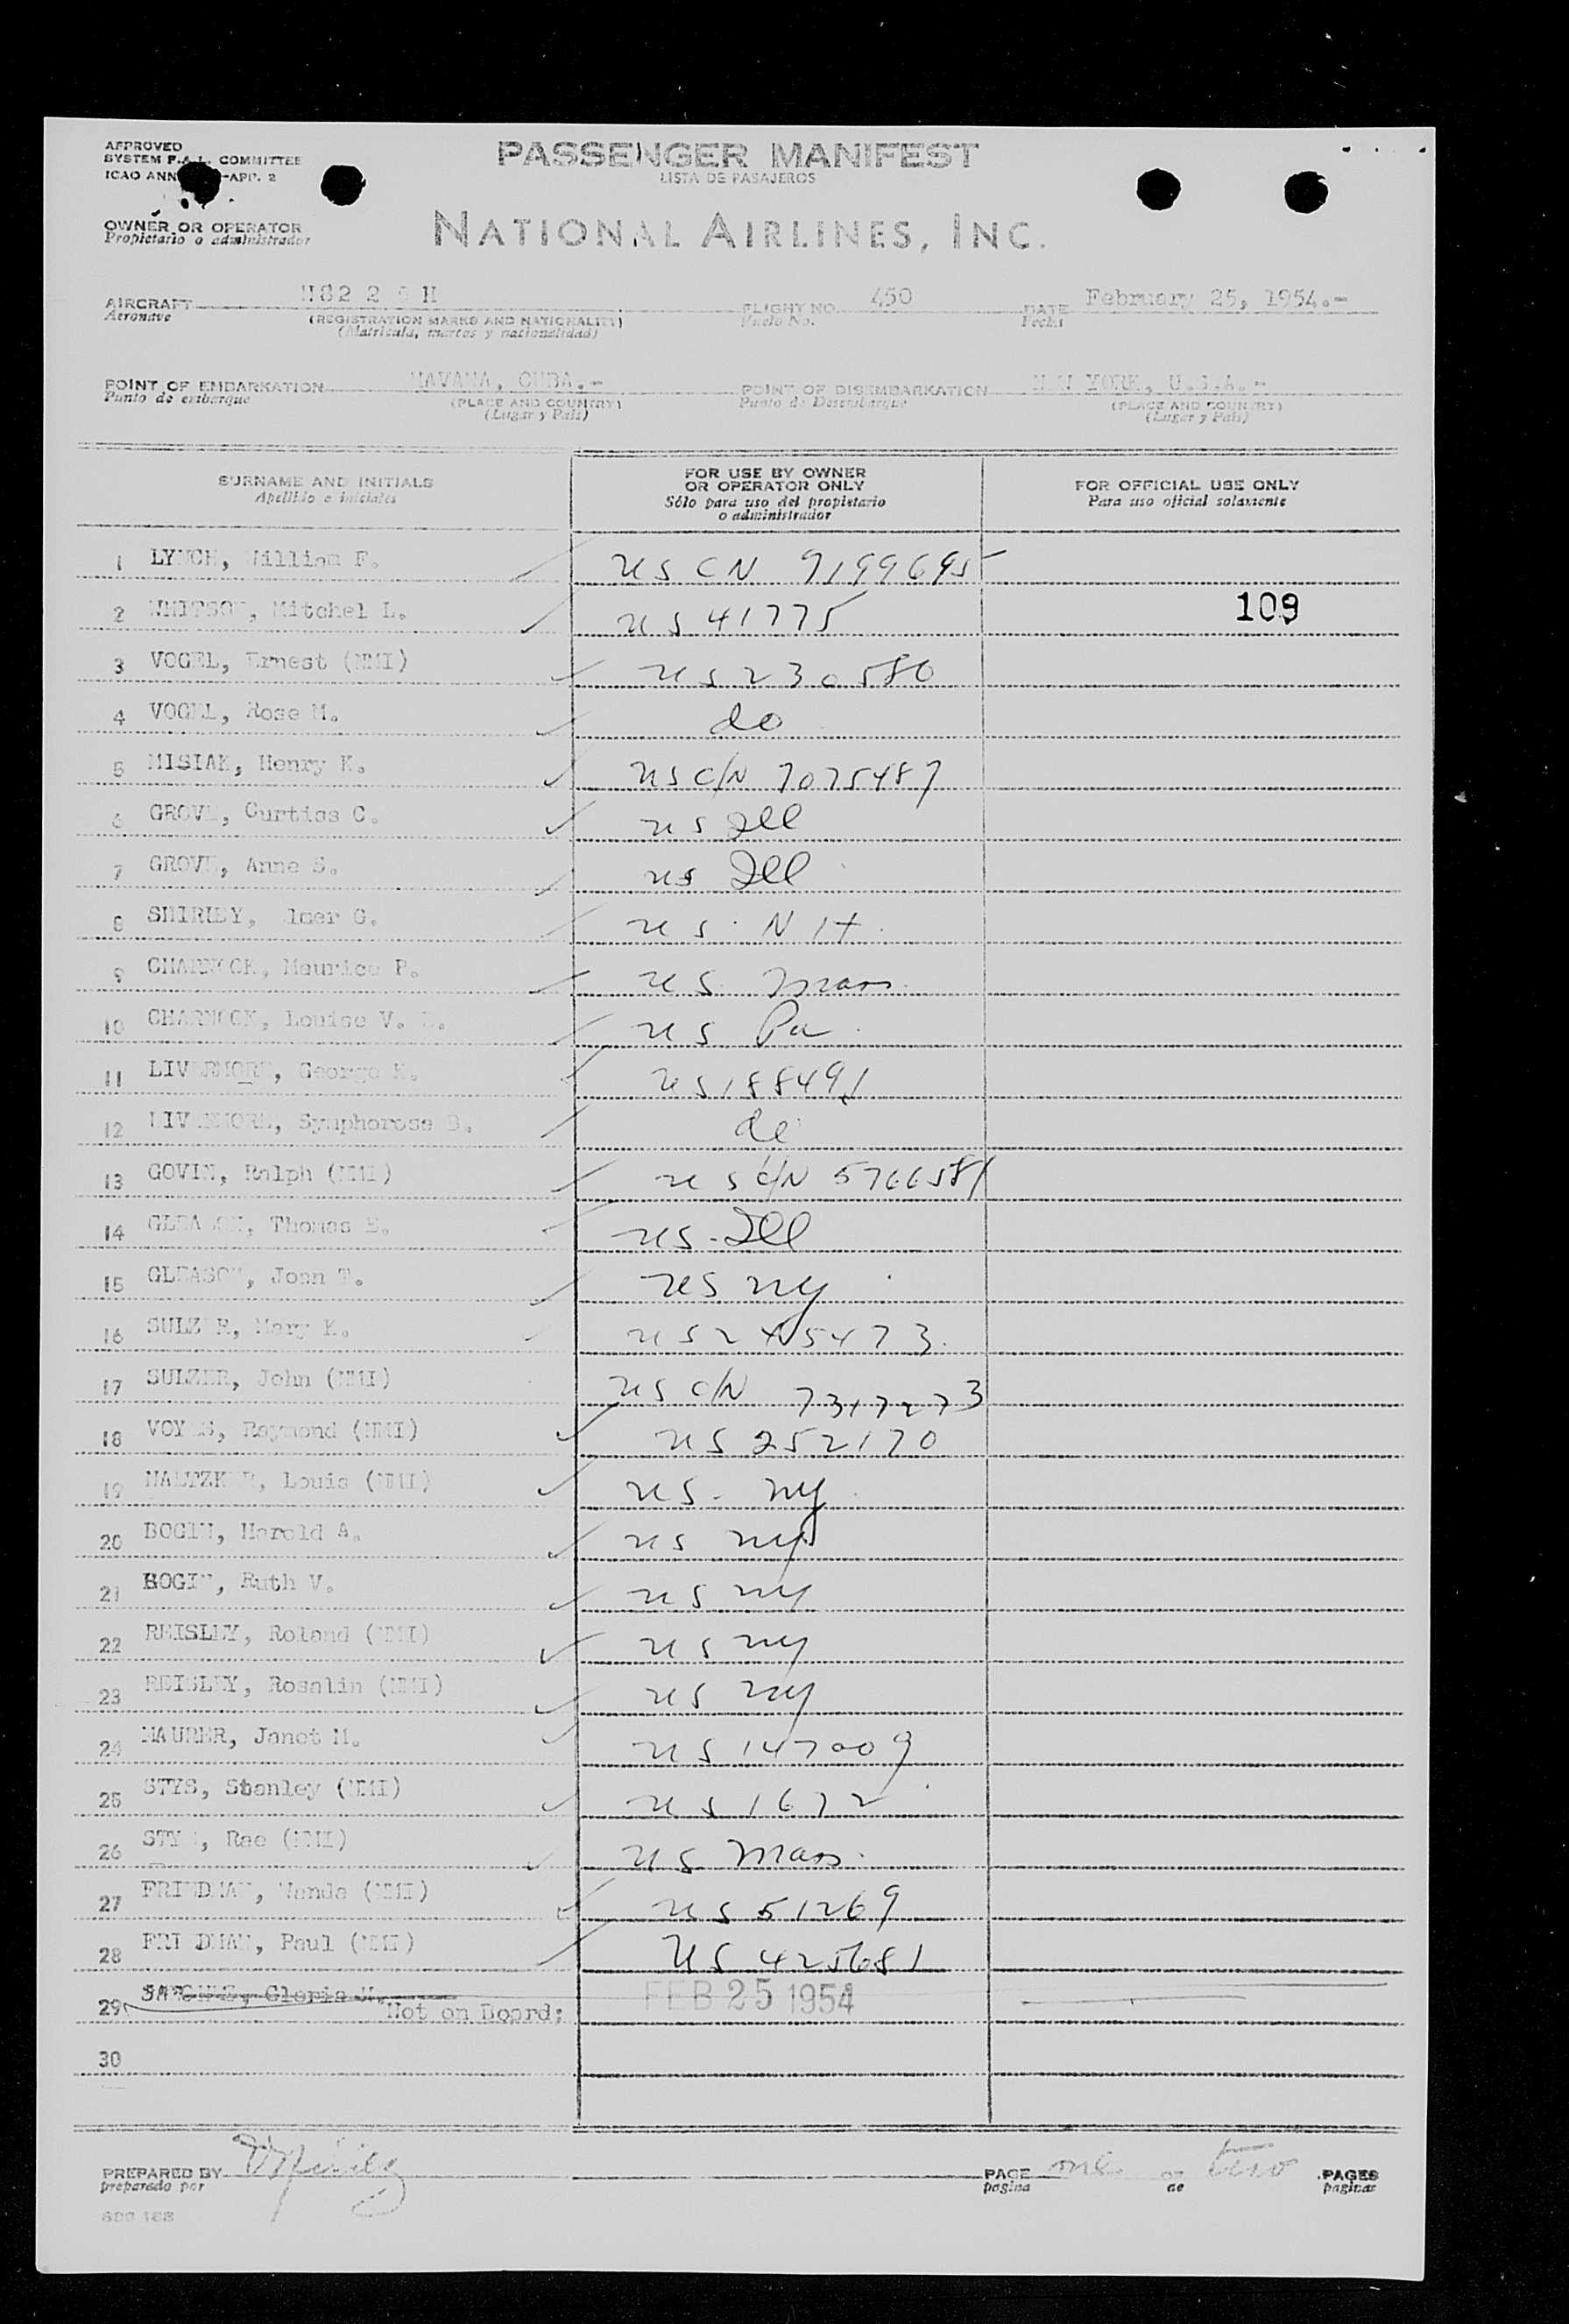 APPROVED
SYSTEM F.A.L. COMMITTEE
ICAO ANN -APP. 2
PASSENGER MANIFEST
LISTA DE PASAJEROS
OWNER OR OPERATOR
Propietario o administrador
NATIONAL AIRLINES, INC.
AIRCRAFT FLIGHT NO. 450 DATE February 25, 1954.-
Aeronave (REGISTRATION MARKS AND NATIONALITY) Vuelo No. Fecha
(Matricula, marcas y nacionalidad)
POINT OF EMBARKATION HAVANA, CUBA.- POINT OF DISEMBARKATION NEW YORK, U.S.A.-
Punto de embarque (PLACE AND COUNTRY) Punto de Desembarque (PLACE AND COUNTRY)
(Lugar y Pais) (Lugar y Pais)
SURNAME AND INITIALS
Apellido e iniciales
FOR USE BY OWNER
OR OPERATOR ONLY
Sólo para uso del propietario
o administrador
FOR OFFICIAL USE ONLY
Para uso oficial solamente
1 LYNCH, William F. US CN 9199695
2 WHITSON, Mitchel L. US 41775 109
3 VOGEL, Ernest (NMI) US 230580
4 VOGEL, Rose M. do
5 MISIAK, Henry K. US C/N 7075487
6 GROVE, Curtiss C. US Ill
7 GROVE, Anne S. US Ill
8 SHIRLEY, Elmer G. US. NH.
9 CHARNOCK, Maurice P. US Mass.
10 CHARNOCK, Louise V. US Pa.
11 LIVERMORE, George US 188491
12 LIVERMORE, Symphorosa B. do
13 GOVIN, Ralph (NMI) US C/N 5766581
14 GLEASON, Thomas E. US-Ill
15 GLEASON, Joan T. US NY
16 SULZER, Mary K. US 245473.
17 SULZER, John (NMI) US C/N 7317273
18 VOYES, Raymond (NMI) US 252170
19 MALTZKER, Louis (NMI) US- NY.
20 BOGIN, Harold A. US NY
21 BOGIN, Ruth V. US NY
22 REISLEY, Roland (NMI) US NY
23 REISLEY, Rosalin (NMI) US NY
24 MAURER, Janet M. US 147009
25 STYS, Stanley (NMI) US 1672
26 STYS, Rae (NMI) US Mass.
27 FRIEDMAN, Wanda (NMI) US 51269
28 FRIEDMAN, Paul (NMI) US 425681
29 Gloria M. Not on Board; FEB 25 1954
30
PREPARED BY PAGE one OF two PAGES
preparado por pagina de paginas